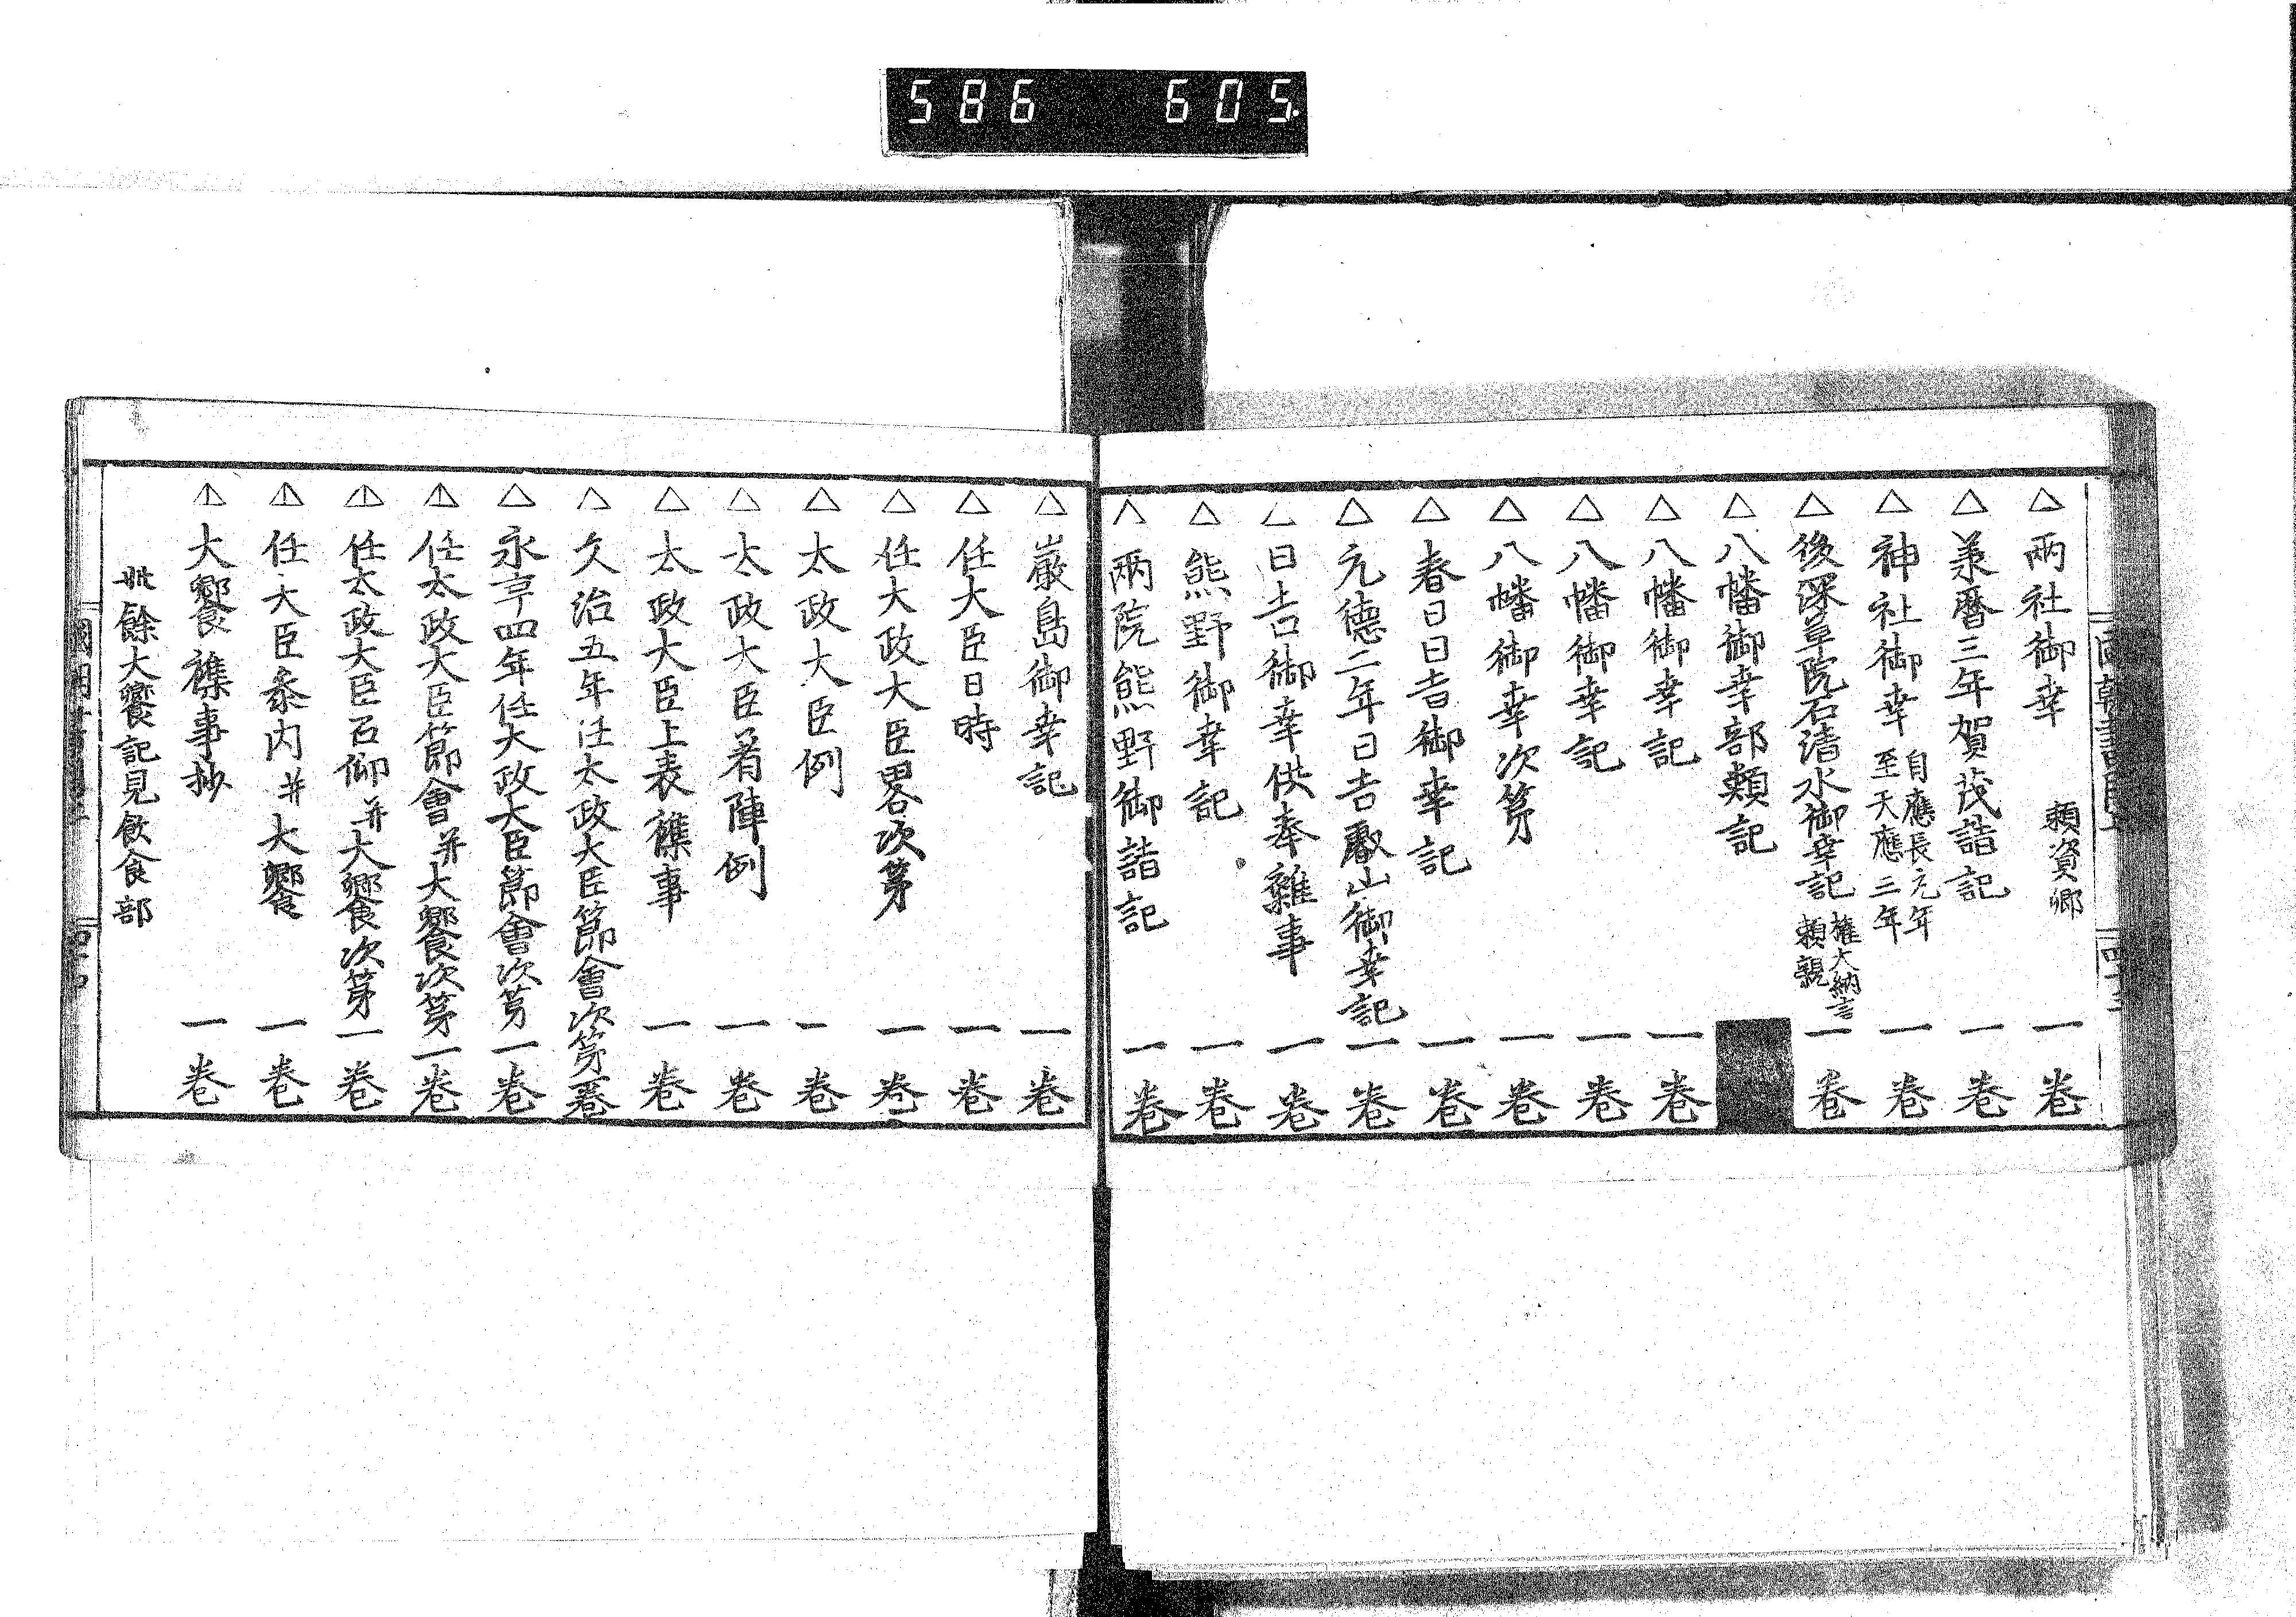 586 605.
△両社御幸 頼資卿 一巻
△承暦三年賀茂詣記 一巻
△神社御幸 自應長元年至天應二年 一巻
△後深草院石清水御幸記 権大納言頼親 一巻
△八幡御幸部類記
△八幡御幸記 一巻
△八幡御幸記 一巻
△八幡御幸次第 一巻
△春日日吉御幸記 一巻
△元德二年日吉叡山御幸記 一巻
△日吉御幸供奉雜事 一巻
△熊野御幸記 一巻
△両院熊野御詣記 一巻
△嚴島御幸記 一巻
△任大臣日時 一巻
△任大政大臣畧次第 一巻
△太政大臣例 一巻
△太政大臣着陣例 一巻
△太政大臣上表襍事 一巻
△久治五年任太政大臣節會次第 一巻
△永享四年任大政大臣節會次第 一巻
△任太政大臣節會并大饗次第 一巻
△任太政大臣召仰并大饗次第 一巻
△任大臣参内并大饗 一巻
△大饗襍事抄 一巻
此餘大饗記見飲食部